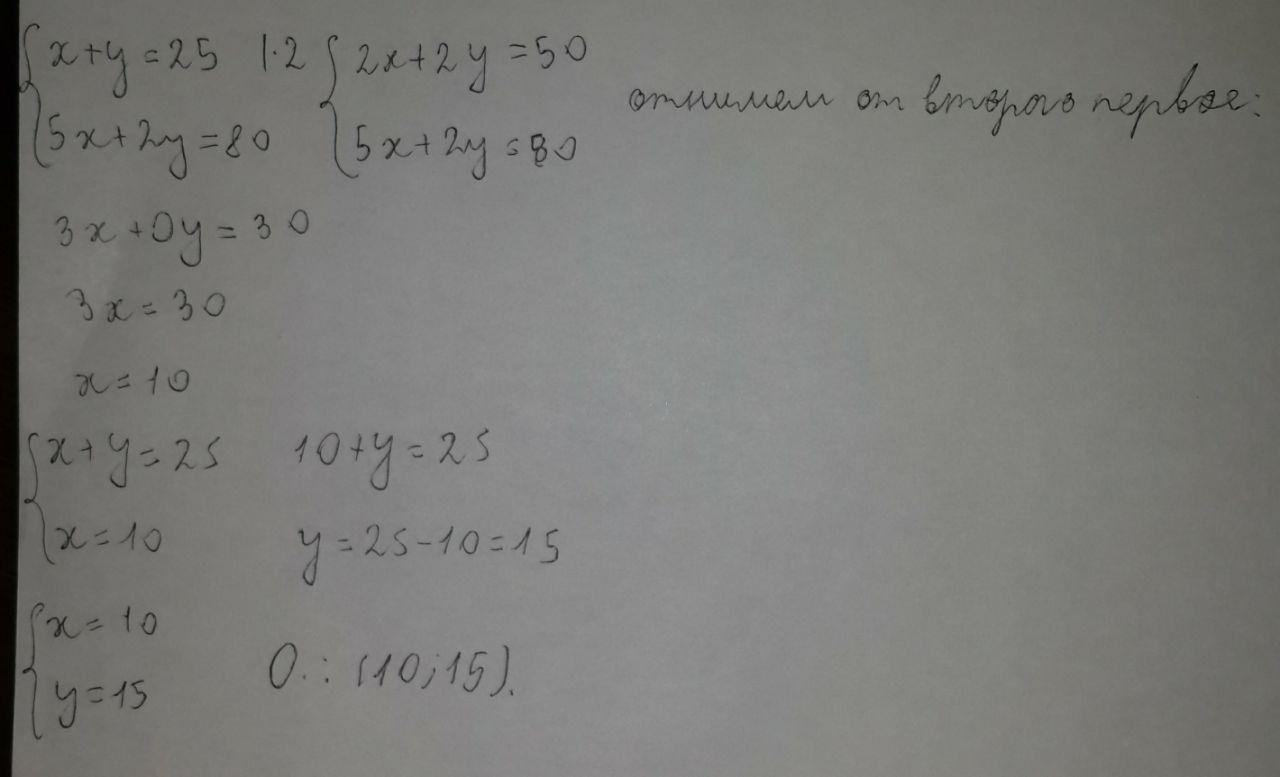 {x+y=25 |·2 {2x+2y=50
{5x+2y=80 {5x+2y=80
отнимем от второго первое:
3x+0y=30
3x=30
x=10
{x+y=25 10+y=25
{x=10 y=25-10=15
{x=10
{y=15 О.: (10;15).